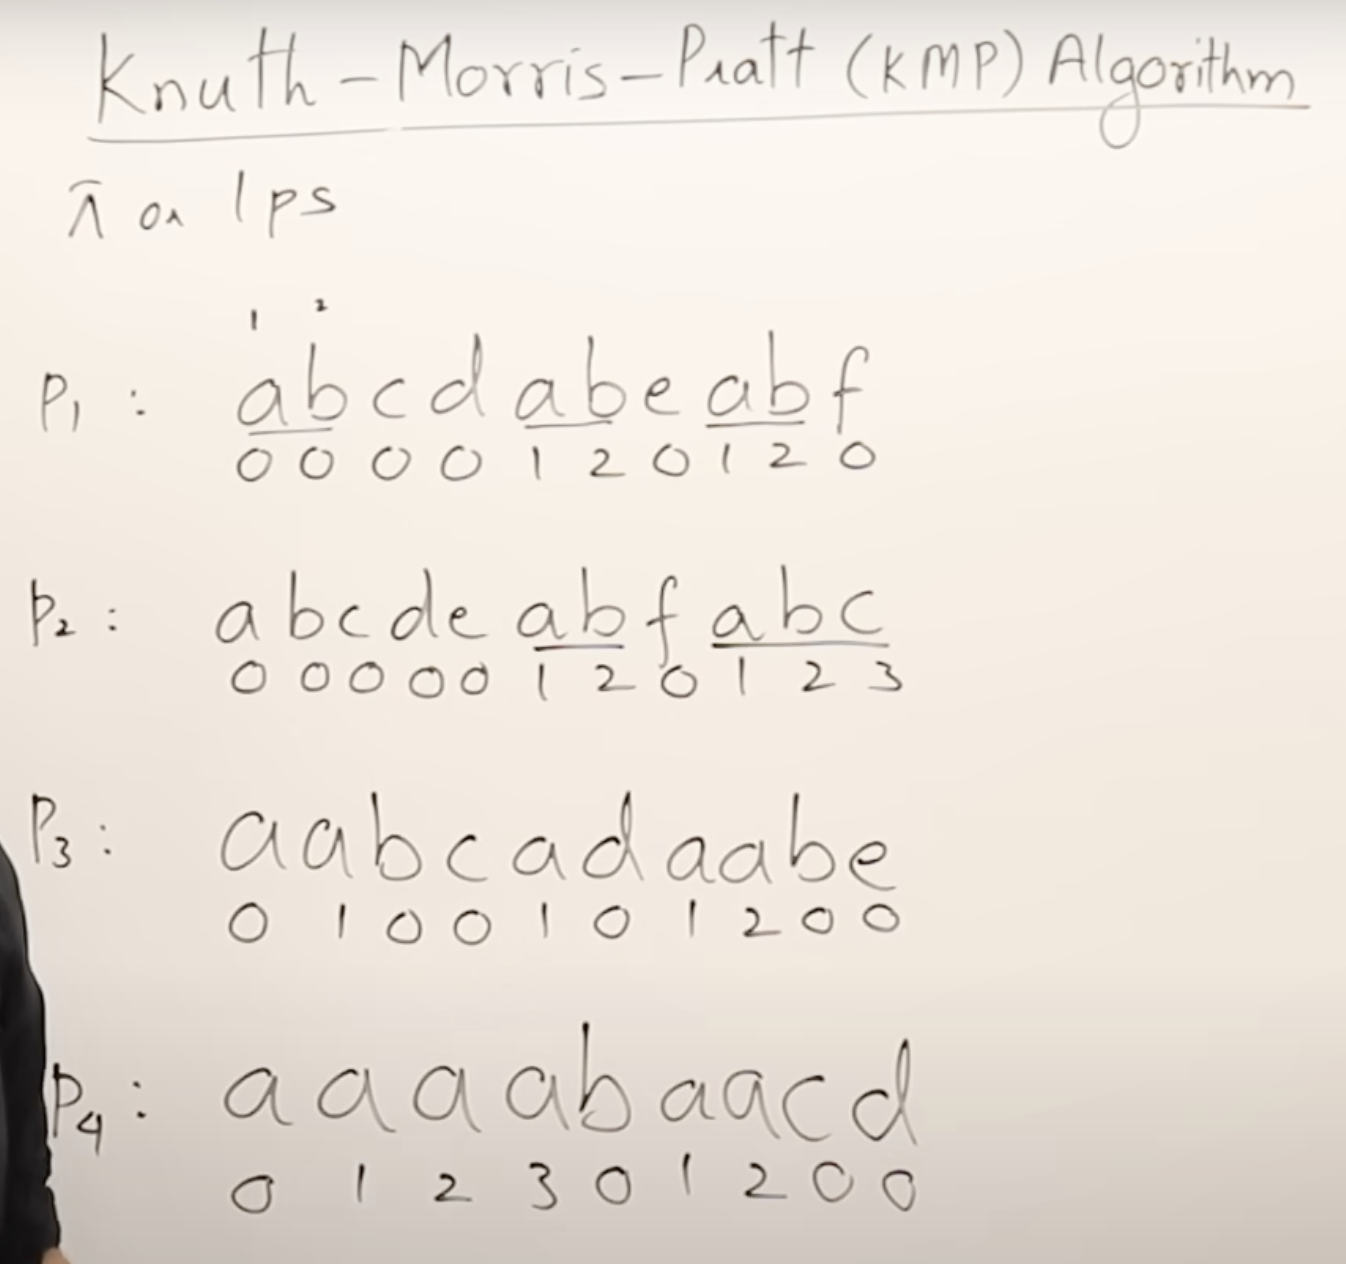 Knuth-Morris-Pratt (KMP) Algorithm
π or lps
1 2
P1 : abcdabeabf
0 0 0 0 1 2 0 1 2 0
P2 : abcdeabfabc
0 0 0 0 0 1 2 0 1 2 3
P3 : aabcadaabe
0 1 0 0 1 0 1 2 0 0
P4 : aaaabaacd
0 1 2 3 0 1 2 0 0